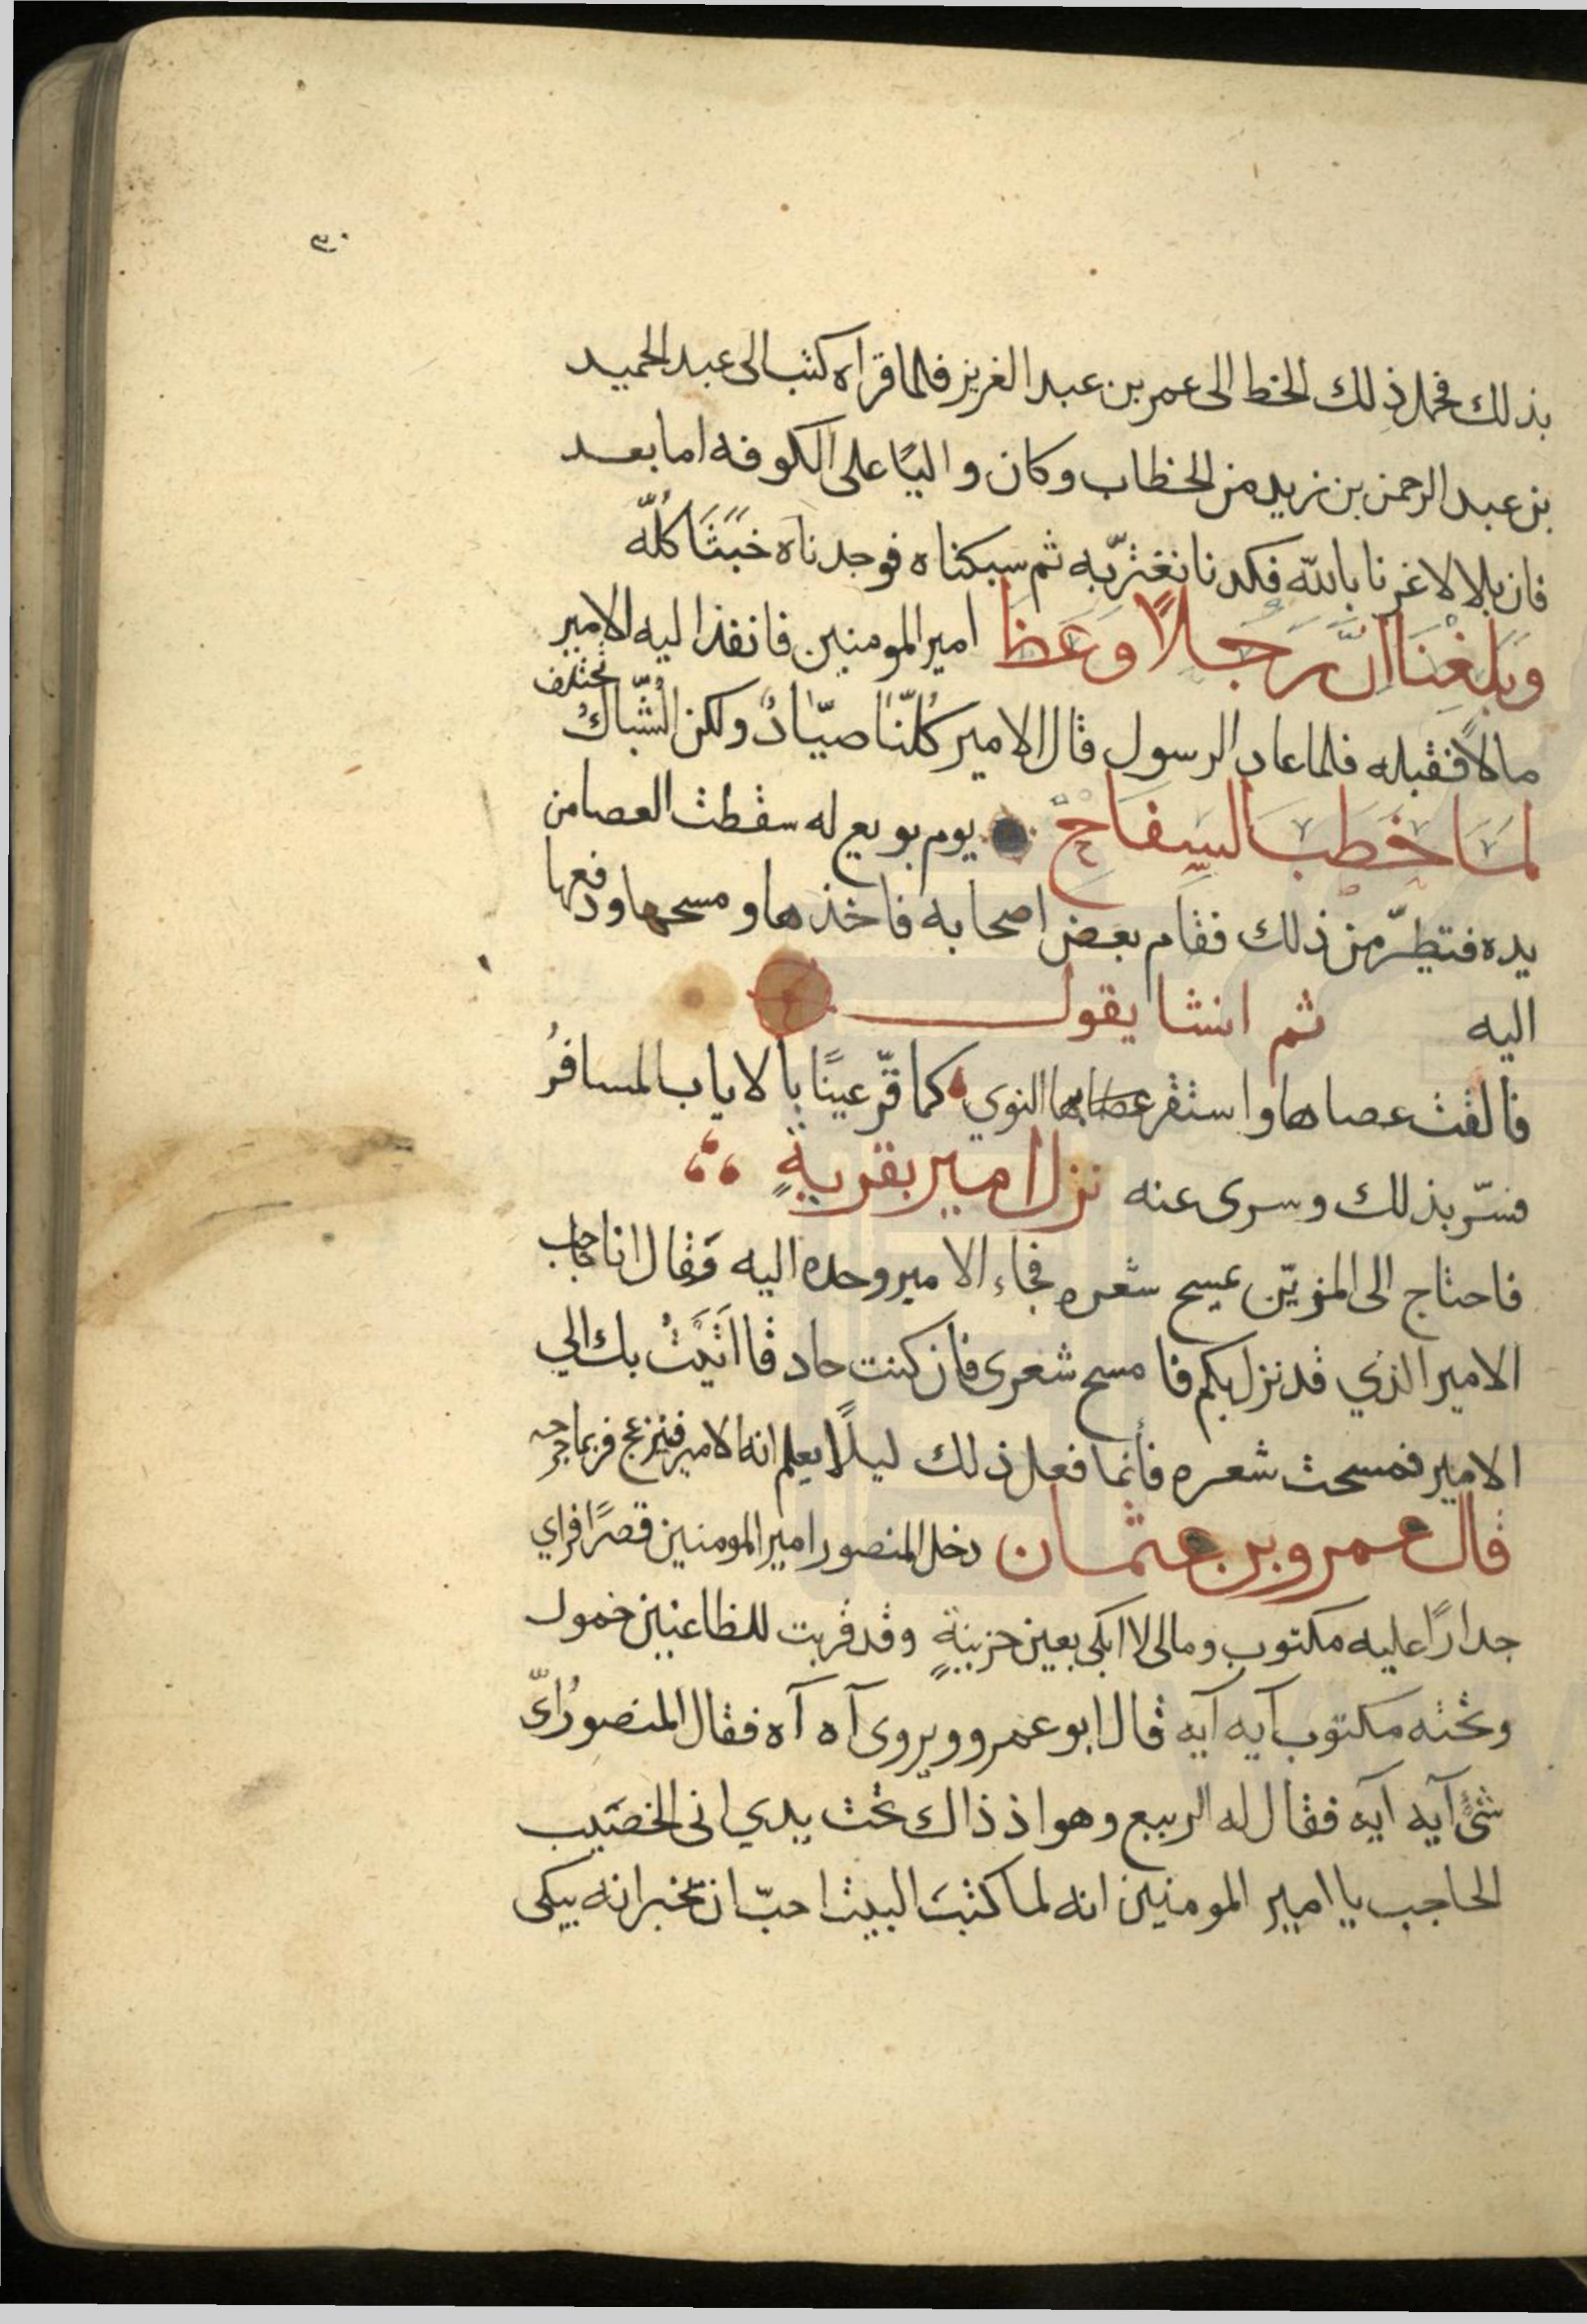 ٣٠
بذلك فحمل ذلك الخط الى عمر بن عبد الغريز فلما قراه كتب الى عبد الحميد
بن عبد الرحمن بن زيد من الخطاب وكان واليًا على الكوفه اما بعد
فان بلالا غرنا بالله فكدنا نغترّ به ثم سبكناه فوجدناه خَبَثًا كُلّه
وَبَلغِنَا اَنَّ رَجلاً وَعَظَ امير المومنين فانفذ اليه الامير
مالاً فقبله فلما عاد الرسول قال الامير كُلّنا صيّادٌ ولكن الشّباكُ تختلف
لمَا خَطَبَ السَفاحْ يوم بويع له سقطت العصا من
يده فتطيّر من ذلك فقام بعض اصحابه فاخذها ومسحها ودفعها
اليه ثم انشا يقول
فالقت عصاها واستقر بها النوي كما قرّ عينًا بالاياب المسافرُ
فسّر بذلك وسرى عنه نزل امير بقريةٍ
فاحتاج الى المزيّن يمسح شعره فجاء الامير وحده اليه وَقال انا حاجب
الامير الذي قد نزل بكم فا مسح شعرى فان كنت حاد قا اتَيْتُ بك الي
الامير فمسحت شعره فأنما فعل ذلك ليلاً يعلم انه الامير فينزعج فربما جرحه
قال عمرو بن عثمان دخل المنصور امير المومنين قصرًا فراي
جدارًا عليه مكتوب ومالى لا ابكى بعين حزينةٍ وقد قربت للظاعنين حمول
وتحته مكتوب آيه آيه قال ابو عمرو ويروى آه آه فقال المنصورُ اىّ
شئٍ آيه آيه فقال له الربيع وهو اذ ذاك تحت يدي انى الخصَيب
الحاجب يا امير المومنين انه لما كتبَ البيت احبّ ان تخبر انه يبكى